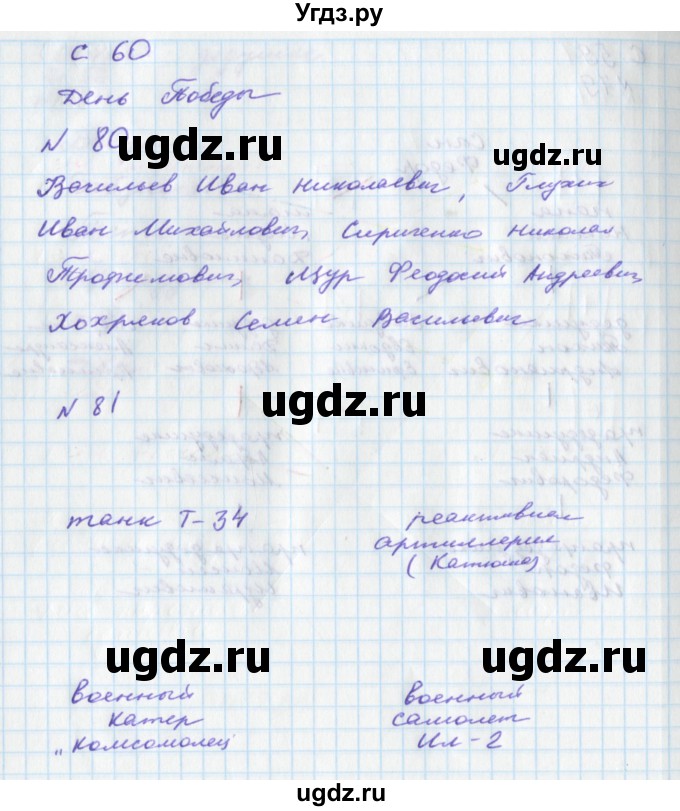 Угдз.ру
с 60
День Победы
N 80
ugdz.ru
ugdz.ru
Васильев Иван Николаевич, Глухих
Иван Михайлович, Сириченко Николай
Трофимович, Щур Феодосий Андреевич,
Хохряков Семен Васильевич
N 81
ugdz.ru
танк Т-34
реактивная
артиллерия
(Катюша)
ugdz.ru
ugdz.ru
военный
катер
„Комсомолец
военный
самолет
Ил-2
ugdz.ru